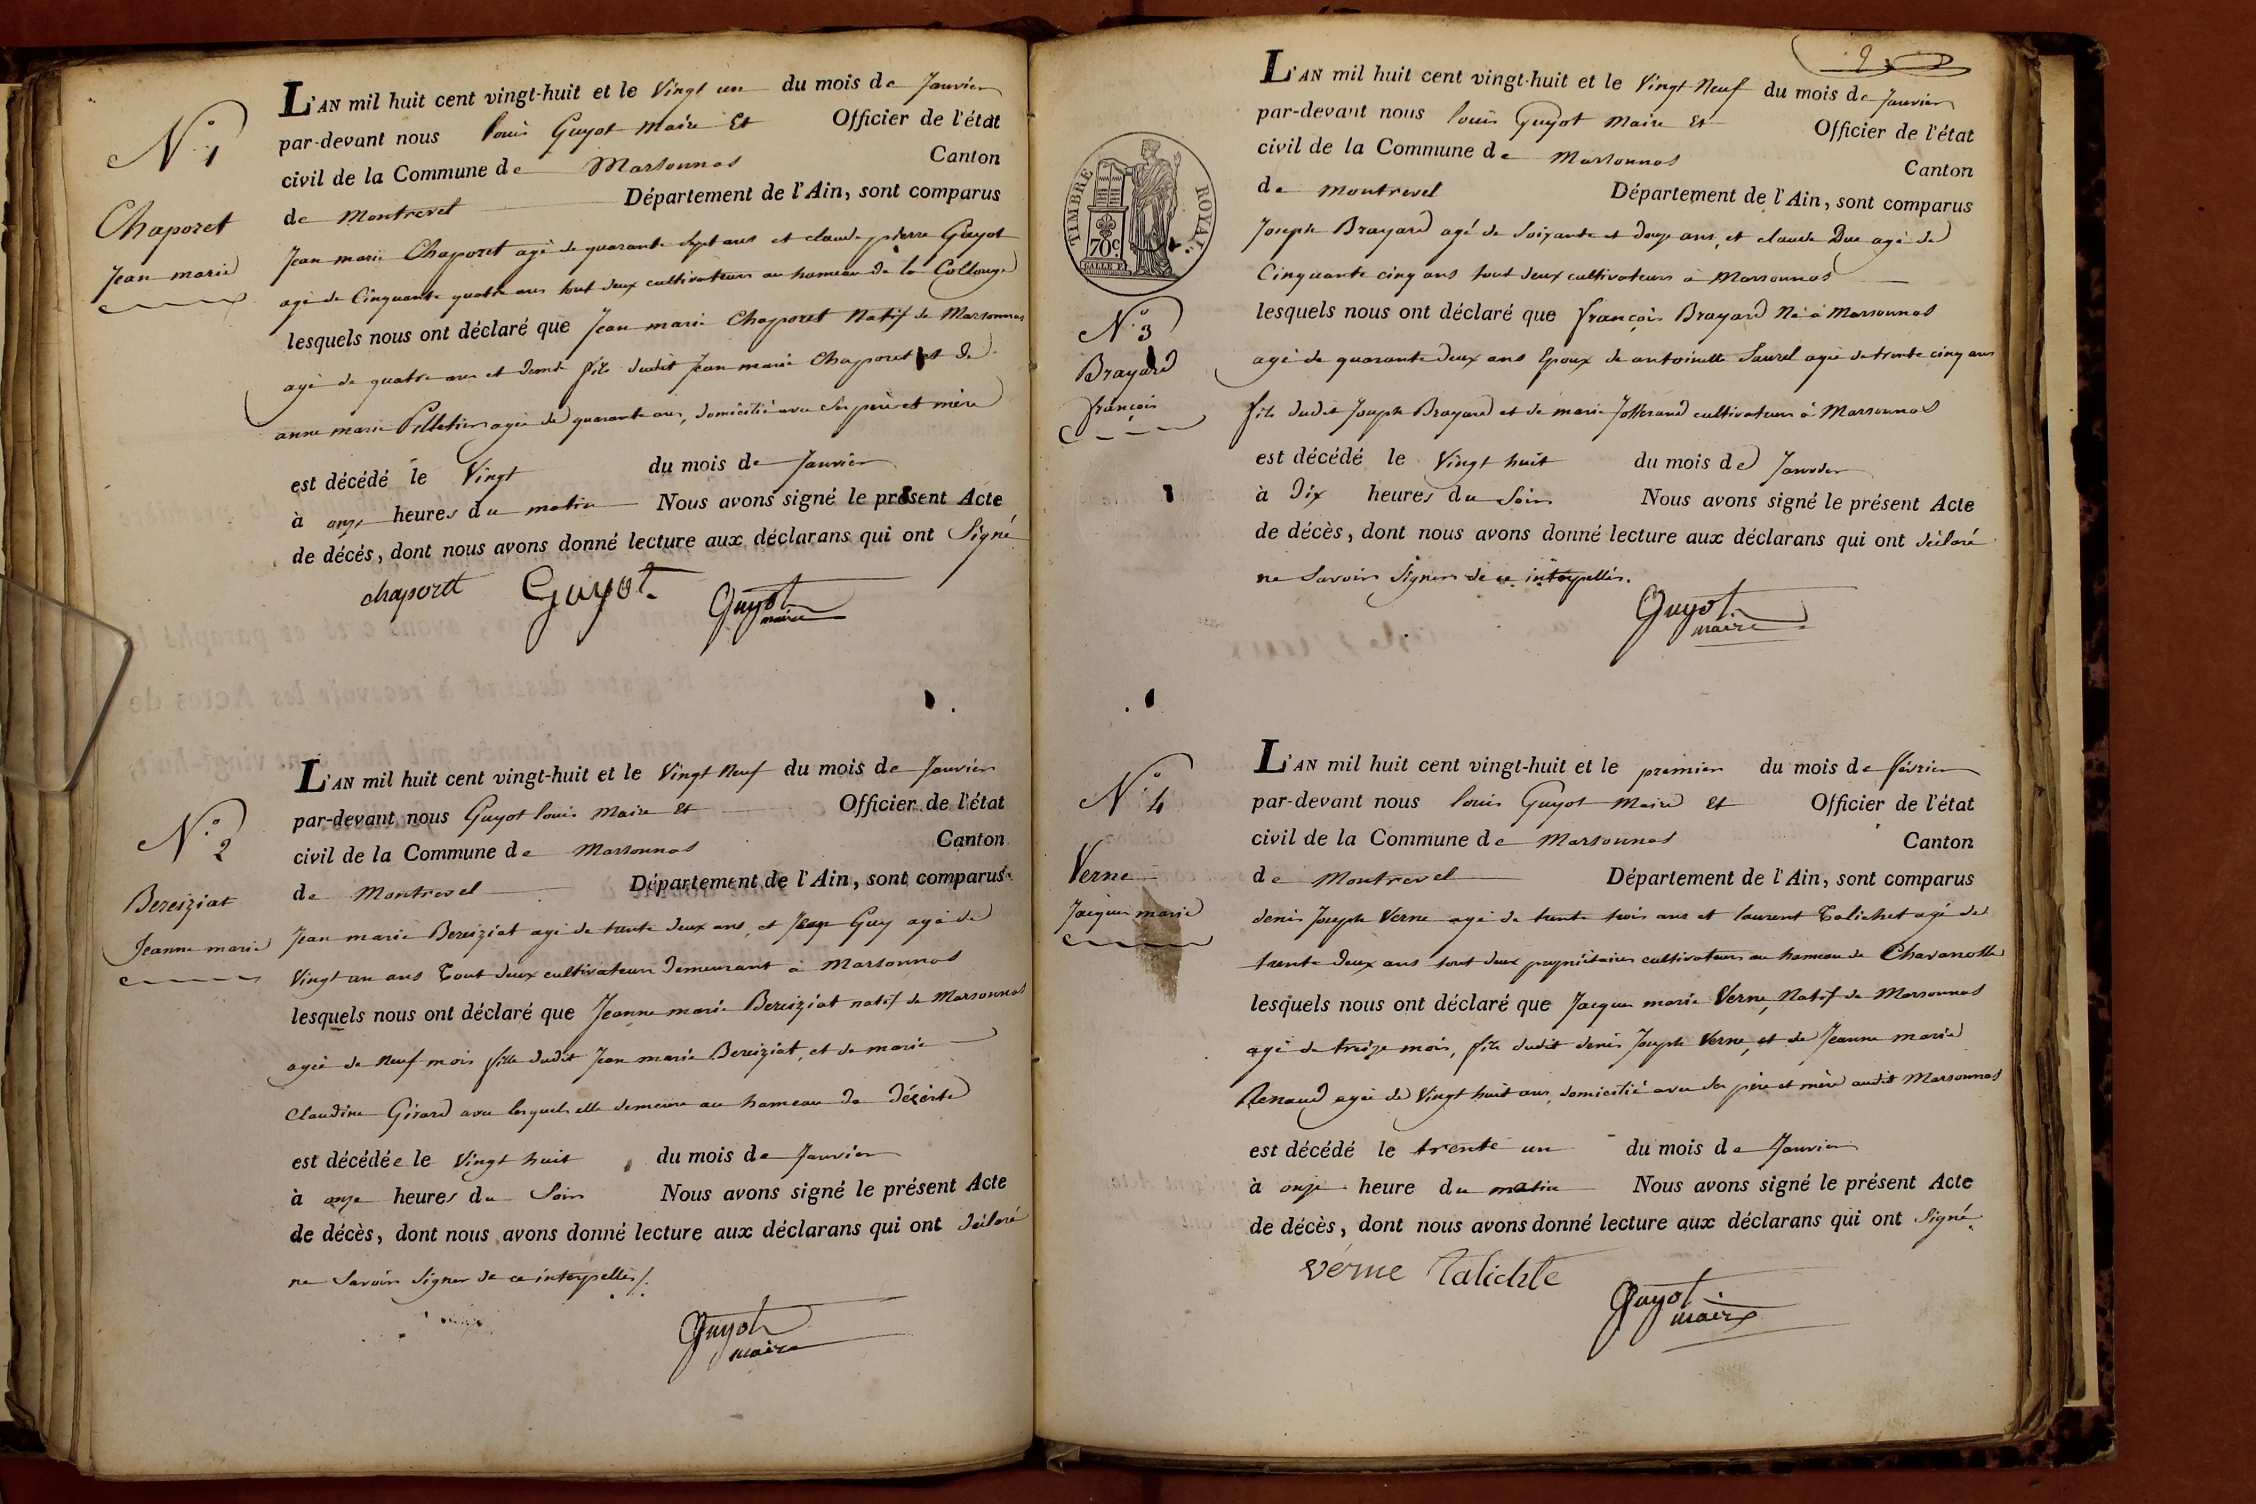 N.° 1
Chaporet
Jean marie
L'AN mil huit cent vingt-huit et le Vingt un du mois de Janvier
par-devant nous louis Guyot Maire Et Officier de l'état
civil de la Commune de Marsonnas Canton
de Montrevel Département de l'Ain, sont comparus
Jean marie Chaporet agé de quarante Sept ans et claude pierre Guyot
agé de Cinquante quatre ans tout deux cultivateurs au hameau de la Collonge
lesquels nous ont déclaré que Jean marie Chaporet Natif de Marsonnas
agé de quatre ans et demi fils dudit Jean marie Chaporet et de
anne marie Pelletier agée de quarante ans, domicilié avec Ses père et mère
est décédé le Vingt du mois de Janvier
à onze heures du matin Nous avons signé le présent Acte
de décès, dont nous avons donné lecture aux déclarans qui ont Signé
chaporet Guyot Guyot
maire
N.° 2
Bereiziat
Jeanne marie
L'AN mil huit cent vingt-huit et le Vingt Neuf du mois de Janvier
par-devant nous Guyot louis Maire Et Officier de l'état
civil de la Commune de Marsonnas Canton
de Montrevel Département de l'Ain, sont comparus
Jean marie Bereiziat agé de trente deux ans, et Guy agé de
Vingt un ans Tout deux cultivateurs demeurant à Marsonnas
lesquels nous ont déclaré que Jeanne marie Bereiziat natif de Marsonnas
agée de Neuf mois fille dudit Jean marie Bereiziat, et de marie
Claudine Girard avec lesquels elle demeure au hameau de
est décédée le Vingt huit du mois de Janvier
à onze heures du Soir Nous avons signé le présent Acte
de décès, dont nous avons donné lecture aux déclarans qui ont déclaré
ne Savoir Signer de ce interpellés/.
Guyot
maire
2
TIMBRE ROYAL
70c
N.° 3
Brayard
françois
L'AN mil huit cent vingt-huit et le Vingt Neuf du mois de Janvier
par-devant nous louis Guyot Maire Et Officier de l'état
civil de la Commune de Marsonnas Canton
de Montrevel Département de l'Ain, sont comparus
Joseph Brayard agé de Soixante et douze ans, et claude Duc agé de
Cinquante cinq ans tout deux cultivateurs à Marsonnas
lesquels nous ont déclaré que françois Brayard Né à Marsonnas
agé de quarante deux ans Epoux de antoinette Saurel agée de trente cinq ans
fils dudit Joseph Brayard et de marie Jofferand cultivateurs à Marsonnas
est décédé le Vingt huit du mois de Janvier
à Dix heures du Soir Nous avons signé le présent Acte
de décès, dont nous avons donné lecture aux déclarans qui ont déclaré
ne Savoir Signer de ce interpellés.
Guyot
maire
N.° 4
Verne
Jacques marie
L'AN mil huit cent vingt-huit et le premier du mois de février
par-devant nous louis Guyot Maire Et Officier de l'état
civil de la Commune de Marsonnas Canton
de Montrevel Département de l'Ain, sont comparus
denis Joseph Verne agé de trente trois ans et laurent Talichet agé de
trente deux ans tout deux propriétaires cultivateurs au hameau de Chavanolle
lesquels nous ont déclaré que Jacques marie Verne, Natif de Marsonnas
agé de treize mois, fils dudit denis Joseph Verne, et de Jeanne marie
Renaud agée de Vingt huit ans, domicilié avec Ses père et mère audit Marsonnas
est décédé le trente un du mois de Janvier
à onze heure du matin Nous avons signé le présent Acte
de décès, dont nous avons donné lecture aux déclarans qui ont Signé.
verne Talichte Guyot
maire